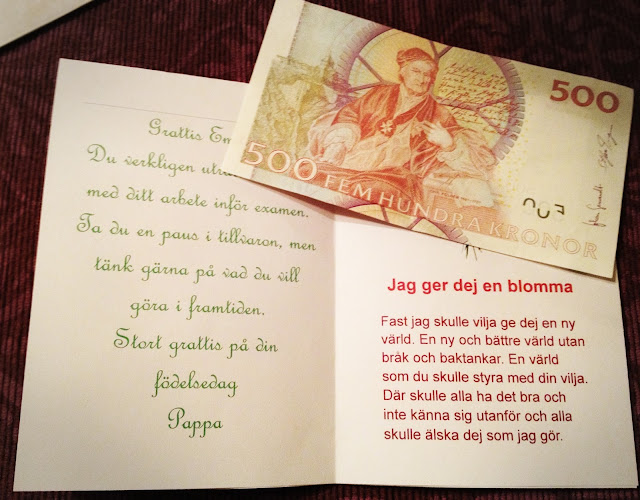 Grattis
Du verkligen
med ditt arbete inför examen.
Ta du en paus i tillvaron, men
tänk gärna på vad du vill
göra i framtiden.
Stort grattis på din
födelsedag
Pappa
500
500 FEM HUNDRA KRONOR
Jag ger dej en blomma
Fast jag skulle vilja ge dej en ny
värld. En ny och bättre värld utan
bråk och baktankar. En värld
som du skulle styra med din vilja.
Där skulle alla ha det bra och
inte känna sig utanför och alla
skulle älska dej som jag gör.